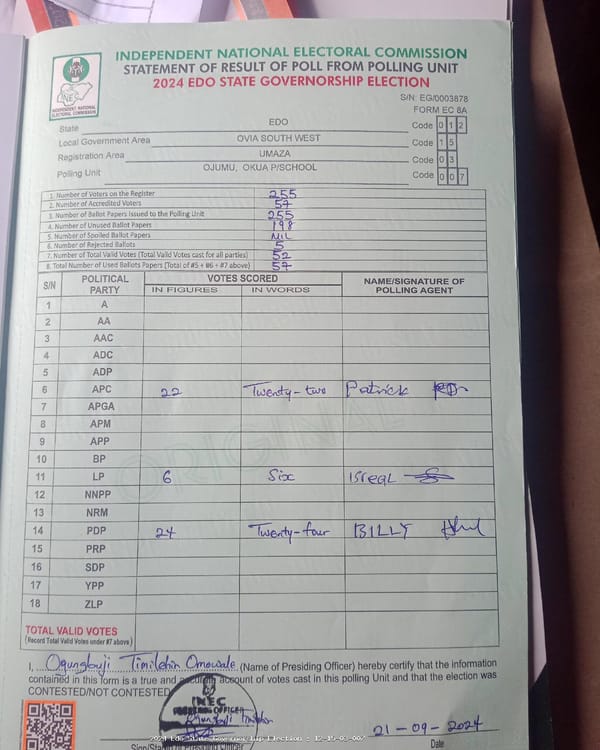 INDEPENDENT NATIONAL ELECTORAL COMMISSION
STATEMENT OF RESULT OF POLL FROM POLLING UNIT
2024 EDO STATE GOVERNORSHIP ELECTION
INEC
INDEPENDENT NATIONAL
ELECTORAL COMMISSION
S/N: EG/0003878
FORM EC 8A
State EDO Code 0 1 2
Local Government Area OVIA SOUTH WEST Code 1 5
Registration Area UMAZA Code 0 3
Polling Unit OJUMU, OKUA P/SCHOOL Code 0 0 7
1. Number of Voters on the Register 255
2. Number of Accredited Voters 57
3. Number of Ballot Papers Issued to the Polling Unit 255
4. Number of Unused Ballot Papers 198
5. Number of Spoiled Ballot Papers NIL
6. Number of Rejected Ballots 5
7. Number of Total Valid Votes (Total Valid Votes cast for all parties) 52
8. Total Number of Used Ballots Papers (Total of #5 + #6 + #7 above) 57
S/N POLITICAL PARTY VOTES SCORED NAME/SIGNATURE OF POLLING AGENT
IN FIGURES IN WORDS
1 A
2 AA
3 AAC
4 ADC
5 ADP
6 APC 22 Twenty-two Patrick
7 APGA
8 APM
9 APP
10 BP
11 LP 6 Six Isreal
12 NNPP
13 NRM
14 PDP 24 Twenty-four BILLY
15 PRP
16 SDP
17 YPP
18 ZLP
ORIGINAL
TOTAL VALID VOTES
(Record Total Valid Votes under #7 above)
I, Ogungbuji Timilehin Omowale (Name of Presiding Officer) hereby certify that the information
contained in this form is a true and accurate account of votes cast in this polling Unit and that the election was
CONTESTED/NOT CONTESTED
INEC
PRESIDING OFFICER
Ogungbuji Timilehin
21-09-2024
2024 Edo State Governorship Election : 12-15-03-007
Sign/Stamp of Presiding Officer Date